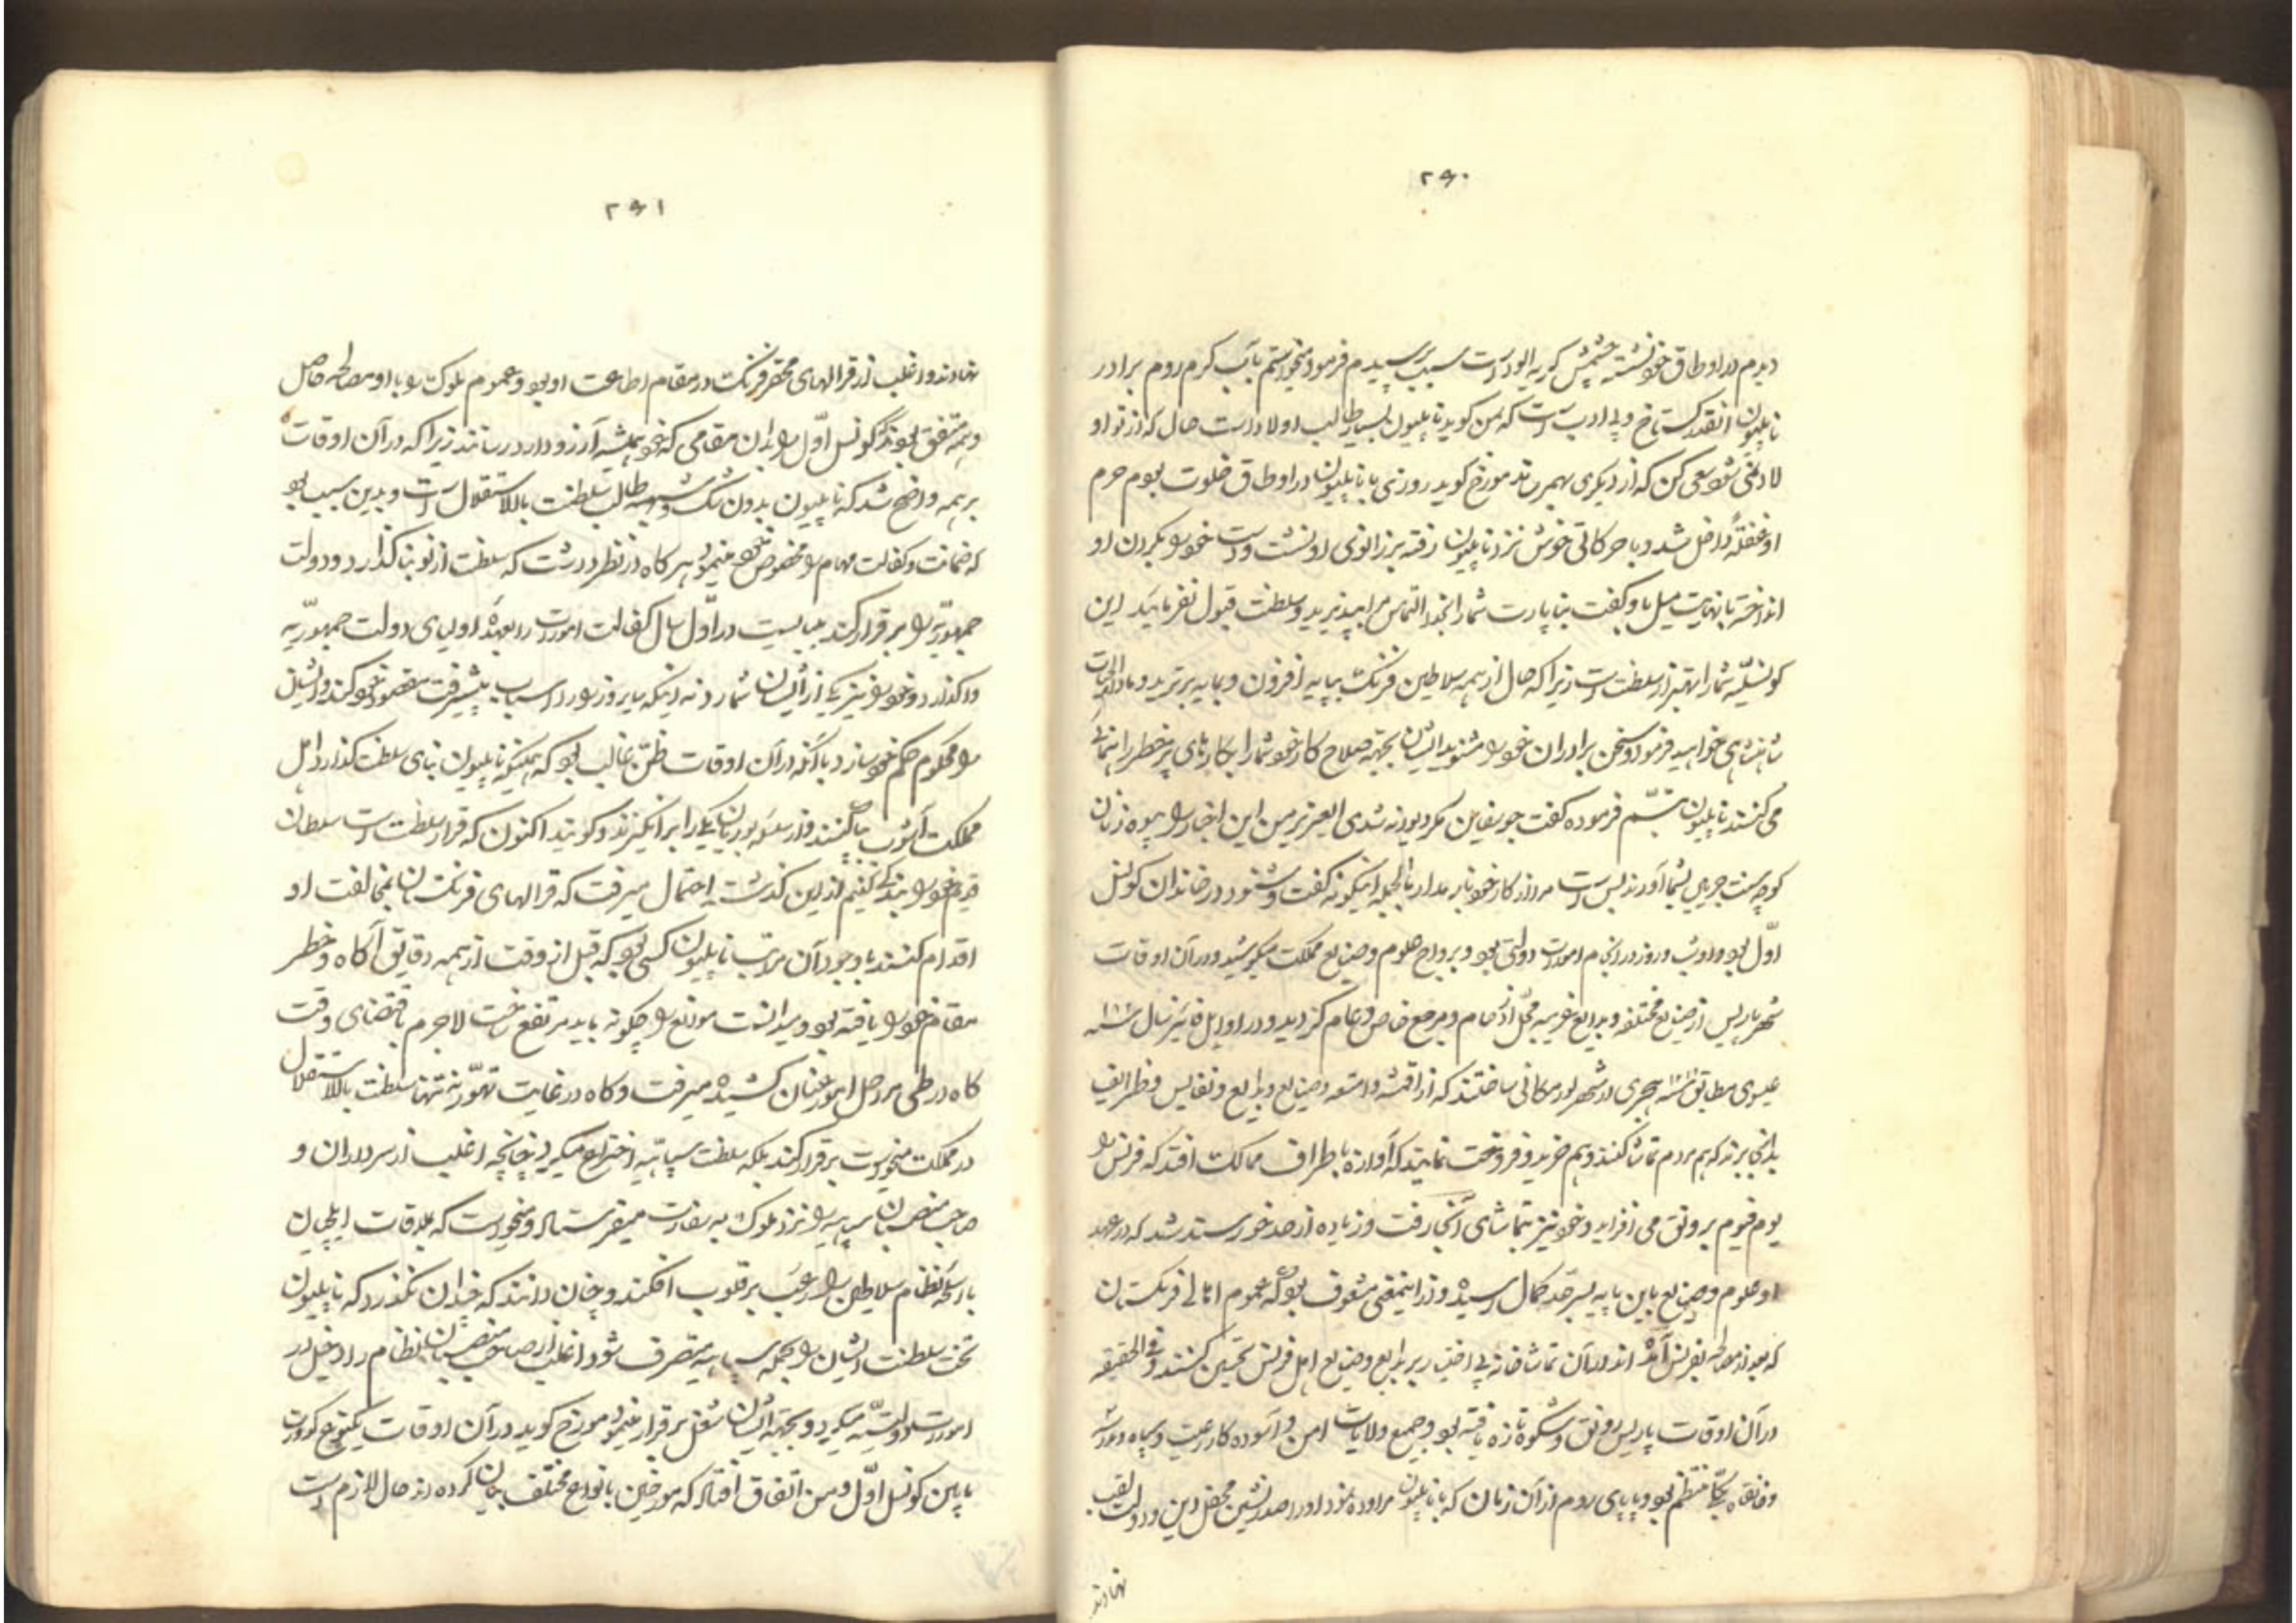 ۲۹۰
دیدم در اوطاق خود نشسته چشمش گریه آلود است سبب پرسیدم فرمود میخواستم بآب گرم روم برادر
ناپلیون آنقدر گستاخ و بی ادب است که بمن گوید ناپلیون بسیار طالب اولاد است حال که از تو او
لادنمی شود سعی کن که از دیگری بهم رسد مورخ گوید روزی با ناپلیون در اوطاق خلوت بودم حرم
او غفلةً داخل شد و با حرکاتی خوش نزد ناپلیون رفته بر زانوی او نشست و دست خود را بگردن او
انداخته با نهایت میل باو گفت بناپارت شما را بخدا التماس مرا بپذیرید و سلطنت قبول نفرمائید این
کونسلیه شما را بهتر از سلطنت است زیرا که حال از همه سلاطین فرنگ بپایه افزون و بمایه برترید
شاهنشاهی خواهید فرمود سخن برادران خود را مشنوید ایشان بجهة صلاح کار خود شما را بکارهای پر خطر راهنمائی
می کنند ناپلیون تبسم فرموده گفت جوسفاین مگر دیوانه شدی العزیز من این اخبار را بیوه زنان
کوچه سنت جرمین بشما آورند بس است مرا از کار خود باز مدار بالجمله اینگونه گفت و شنود در خاندان کونسل
اول بود و او شب و روز در انجام امورات دولتی بود و برواج علوم و صنایع مملکت میکوشید و در آن اوقات
شهر پاریس از صنایع مختلفه و بدایع غریبه محل ازدحام و مرجع خاص و عام گردید و در اوایل پائیز سال
عیسوی مطابق هجری در شهر لور مکانی ساختند که از اقمشه و امتعه و صنایع و بدایع و نفایس و ظرایف
بدانجا برند که هم مردم تماشا کنند و هم خرید و فروخت نمایند که آوازه باطراف ممالک افتد که فرنس را
یوم فیوم بر رونق می افزاید و خود نیز بتماشای آنجا رفت و زیاده از حد خورسند شد که در عهد
او علوم و صنایع باین پایه بسرحد کمال رسیده و از اینمعنی مشعوف بود که عموم اهالی فرنگستان
که بعد از مصالحه بفرنس آمده اند در آن تماشاخانه بی اختیار بر بدایع و صنایع اهل فرنس تحسین کنند و فی الحقیقه
در آن اوقات پاریس رونق و شکوه تازه یافته بود و جمیع ولایات امن و آسوده کار رعیت و سپاه و مدارس
و خانقاه یکجا منتظم بود و پاپای روم از آن زمان که با ناپلیون مراوده نمود او را صدرنشین محفل دین و دولت لقب
نهادند
۲۹۱
نهادند و اغلب از قرالهای محقر فرنگ در مقام اطاعت او بود و عموم ملوک را با او مصالحه حاصل
و همه متفق بودند که کونسل اول را بدان مقامی که خود همیشه آرزو دارد رسانند زیرا که در آن اوقات
بر همه واضح شد که ناپلیون بدون شک و شبهه طالب سلطنت بالاستقلال است و بدین سبب بود
که ضمانت و کفالت مهام را مخصوص خود مینمود هر گاه در نظر داشت که سلطنت از نو بنا گذارد و دولت
جمهوریه را برقرار کند میبایست در اول سال کفالت امورات را بعهده اولیای دولت جمهوریه
واگذارد و خود را نیز یکی از ایشان شمارد نه اینکه سایرو زرا را اسباب پیشرفت مقصود خود کند و ایشان
را محکوم حکم خود سازد با آنکه در آن اوقات ظن غالب بود که همینکه ناپلیون بنای سلطنت گذارد اهل
مملکت آشوب بپا کنند و از سلسله بوربان یکی را برانگیزند و گویند اکنون که قرار سلطنت است سلطان
قدیم خود را بندگی کنیم از این گذشته احتمال میرفت که قرالهای فرنگستان بمخالفت او
اقدام کنند با وجود آن مراتب ناپلیون کسی بود که قبل از وقت از همه دقایق آگاه و خطر
مقام خود را یافته بود و میدانست موانع را چگونه باید مرتفع ساخت لاجرم باقتضای وقت
گاه در طی مراحل امور عنان کشیده میرفت و گاه در غایت تهور نه تنها سلطنت بالاستقلال
در مملکت میخواست برقرار کند بلکه سلطنت سپاهیه اختراع میکرد چنانچه اغلب از سرداران و
صاحب منصبان سپاهیه را نزد ملوک به سفارت میفرستاد و میخواست که بملاقات ایلچیان
با اسلحه نظام سلاطین را رعب بر قلوب افکند و چنان دانند که چندان نگذرد که ناپلیون
تخت سلطنت ایشان را بجمله سپاهیه متصرف شود و اغلب از صاحب منصبان نظام را داخل در
امورات دولتیه میکرد و بجهة ایشان شغل برقرار مینمود مورخ گوید در آن اوقات یکنوع کدورت
ما بین کونسل اول و من اتفاق افتاد که مورخین بانواع مختلف بیان کرده اند حال لازم است